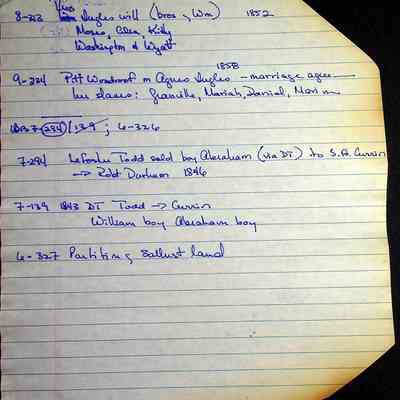 8-223 Ingles will (bros, Wm) 1852
Moses, Eden, Kitty
Washington & Wyatt
1858
9-224 Pitt Woodroof m Agnes Ingles - marriage agree
her slaves: Granville, Mariah, Daniel,
7 (284) /139; 6-326
7-284 Todd sold boy Abraham (via DT) to S.A. Currin
→ Robt Durham 1846
7-139 1843 DT Todd → Currin
William boy Abraham boy
6-327 Partiting Sallust land